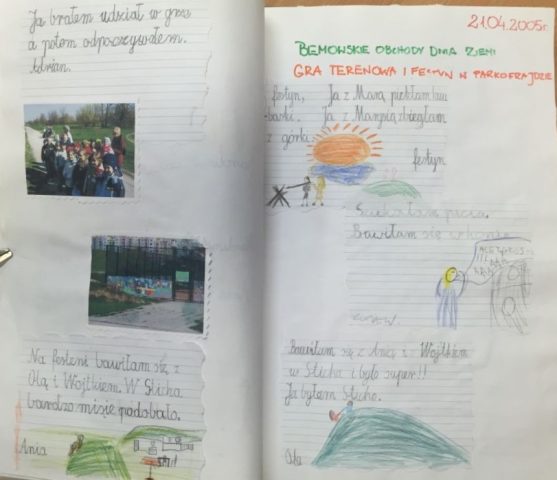 Ja brałem udział w grze
a potem odpoczywałem.
Adrian.
Na festeni bawiłam się z
Olą i Wojtkiem. W Slicha
bardzo misię podobało.
Ania
21.04.2005r.
BEMOWSKIE OBCHODY DNIA ZIEMI
GRA TERENOWA I FESTYN W PARKOFRAJDZIE
festyn. Ja z Marą piekłam
Ja z Marysią zbiegłam
z górki.
festyn
Bawiłam się w
Bawiłam się z Anią i Wojtkiem
w Slicha i było super!!
Ja byłam Slicho.
Ola